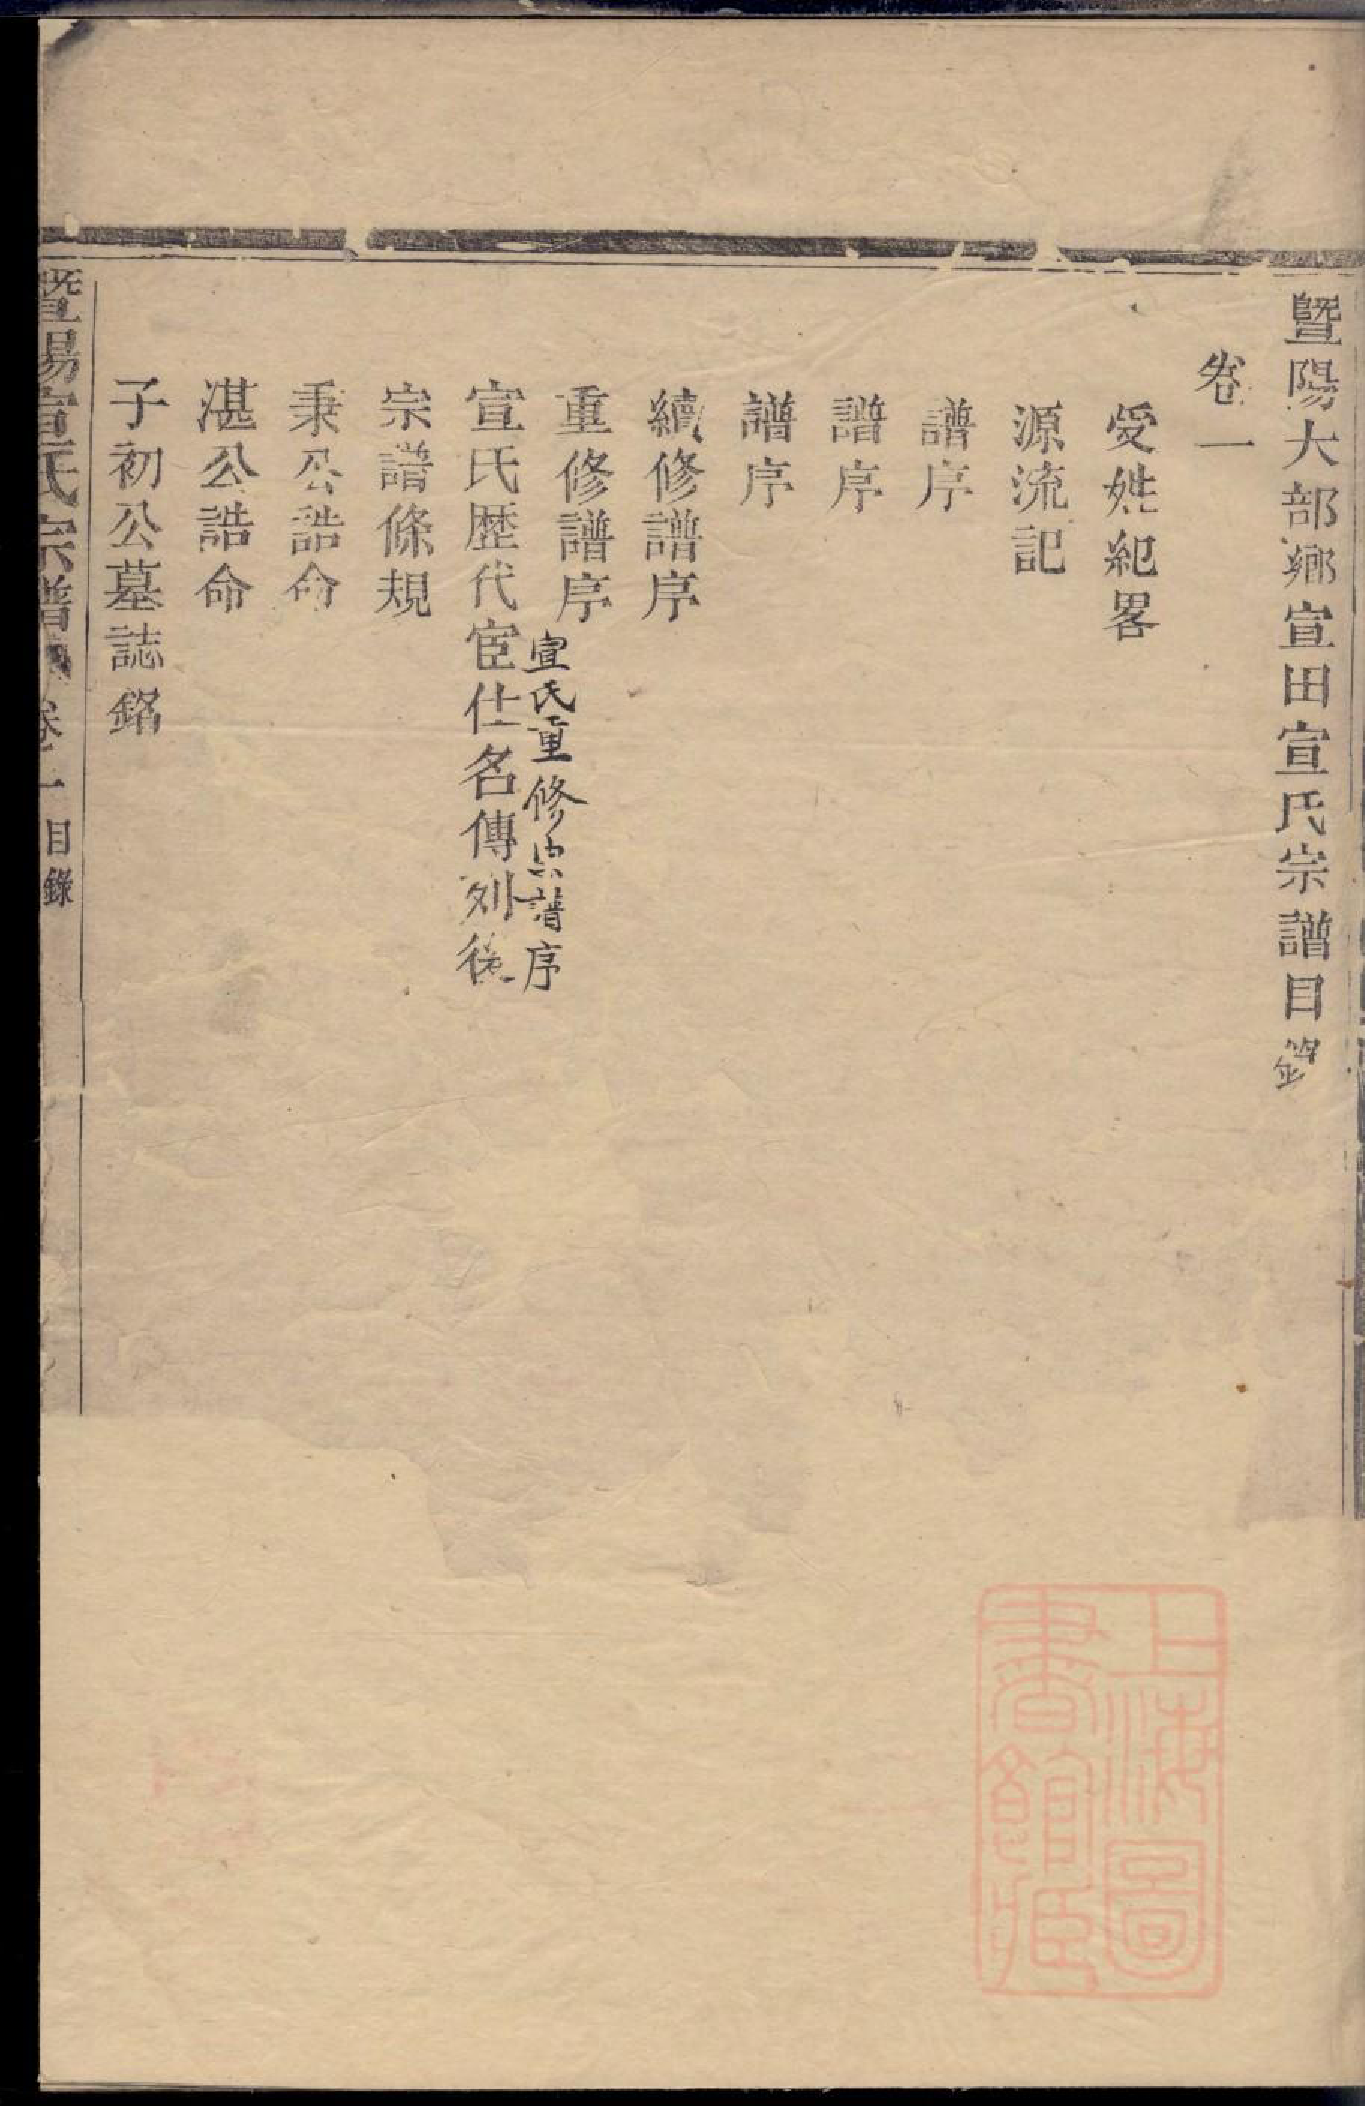 暨陽大部鄉宣田宣氏宗譜目錄
卷一
受姓紀畧
源流記
譜序
譜序
譜序
續修譜序
重修譜序
宣氏重修宗譜序
宣氏歷代宦仕名傳列後
宗譜條規
秉公誥命
湛公誥命
子初公墓誌銘
暨陽宣氏宗譜 卷一 目錄
上海圖書館藏